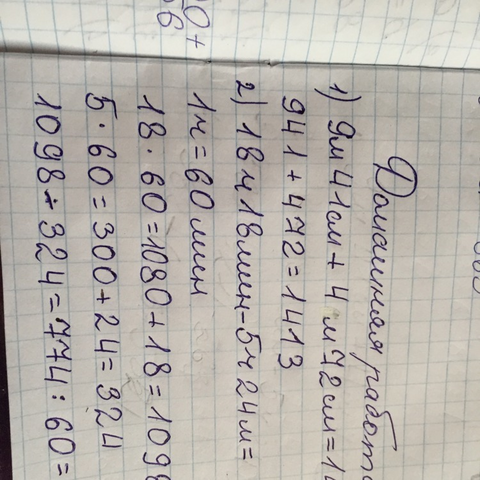 Домашняя работа
1) 9м 41см + 4 м 72см = 14
941 + 472 = 1413
2) 18ч 18мин - 5ч 24м =
1ч = 60 мин
18 · 60 = 1080 + 18 = 1098
5 · 60 = 300 + 24 = 324
1098 - 324 = 774 : 60 =